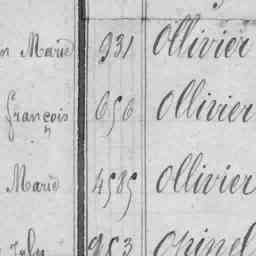 Marie 931 Ollivier
françois 656 Ollivier
Marie 4585 Ollivier
953 Opinel